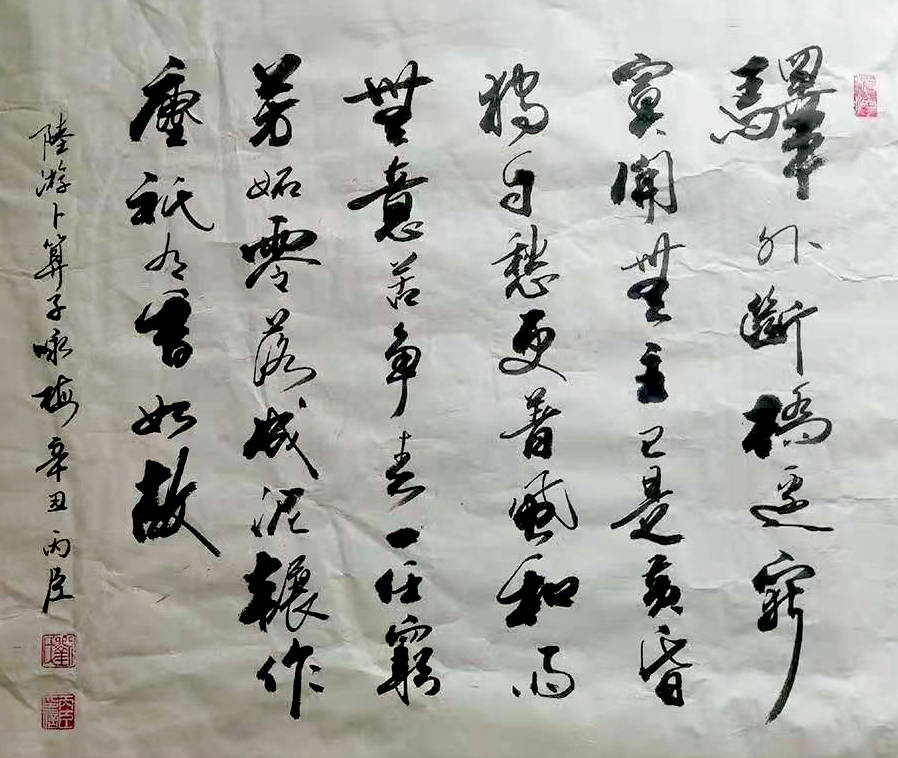 驛外斷橋邊寂
寞開無主已是黃昏
獨自愁更著風和雨
無意苦爭春一任
芳妬零落成泥輾作
塵祇有香如故
陸游卜算子咏梅辛丑丙臣